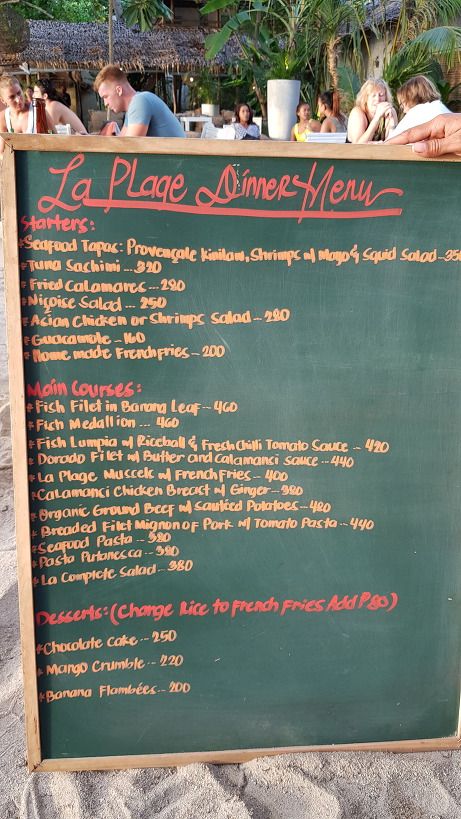 La Plage Dinner Menu
Starters:
*Seafood Tapas: Provençale Kinilaw, Shrimps w/ Mayo & Squid Salad-350
*Tuna Sachimi ... 320
*Fried Calamares -- 280
*Niçoise Salad --- 250
*Asian Chicken or Shrimps Salad -- 280
*Guacamole - 160
*Home made French fries - 200
Main Courses:
*Fish Filet in Banana Leaf -- 460
*Fish Medallion --- 460
*Fish Lumpia w/ Riceball & Fresh Chilli Tomato Sauce -- 420
*Dorado Filet w/ Butter and Calamanci Sauce --440
*La Plage Mussels w/ French Fries -- 400
*Calamanci Chicken Breast w/ Ginger--380
*Organic Ground Beef w/ sautéed Potatoes--480
*Breaded Filet Mignon of Pork w/ Tomato Pasta--440
*Seafood Pasta -- 380
*Pasta Putanesca -- 380
*La Complete Salad -- 380
Desserts: (Change Rice to French Fries Add P80)
*Chocolate Cake -- 250
*Mango Crumble --- 220
*Banana Flambées -- 200